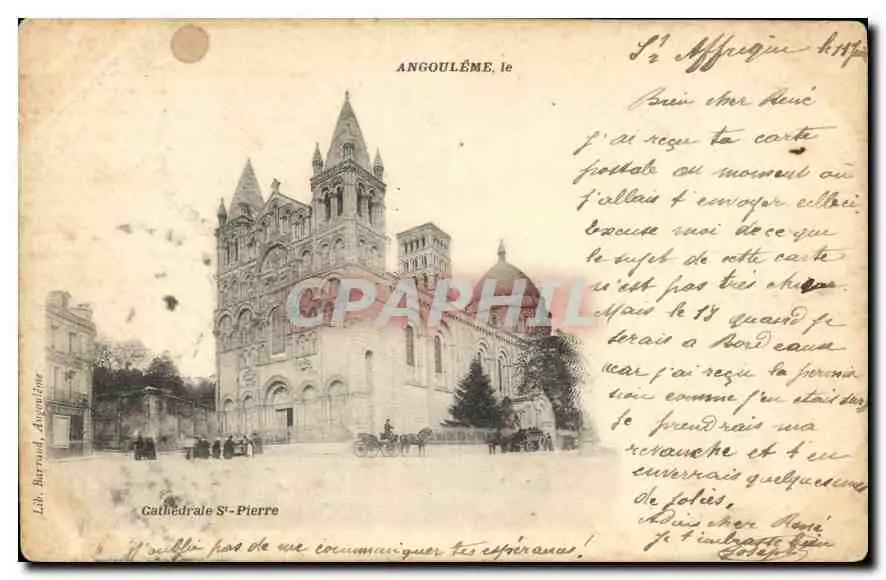 ANGOULÊME, le
St Affrique le 18
Bien cher René
j'ai reçu ta carte
postale au moment où
j'allais t'envoyer celle ci
Excuse moi de ce que
le sujet de cette carte
n'est pas très chique
Mais le 18 quand je
serais a Bordeaux
car j'ai reçu la permis
sion comme j'en étais sûr
je prendrais ma
revanche et t'en
enverrais quelques unes
de jolies,
Adieu cher René
je t'embrasse bien
Joseph
CAPHIL
Lib. Barraud, Angoulême
Cathédrale St-Pierre
J'oublie pas de me communiquer tes espérances!